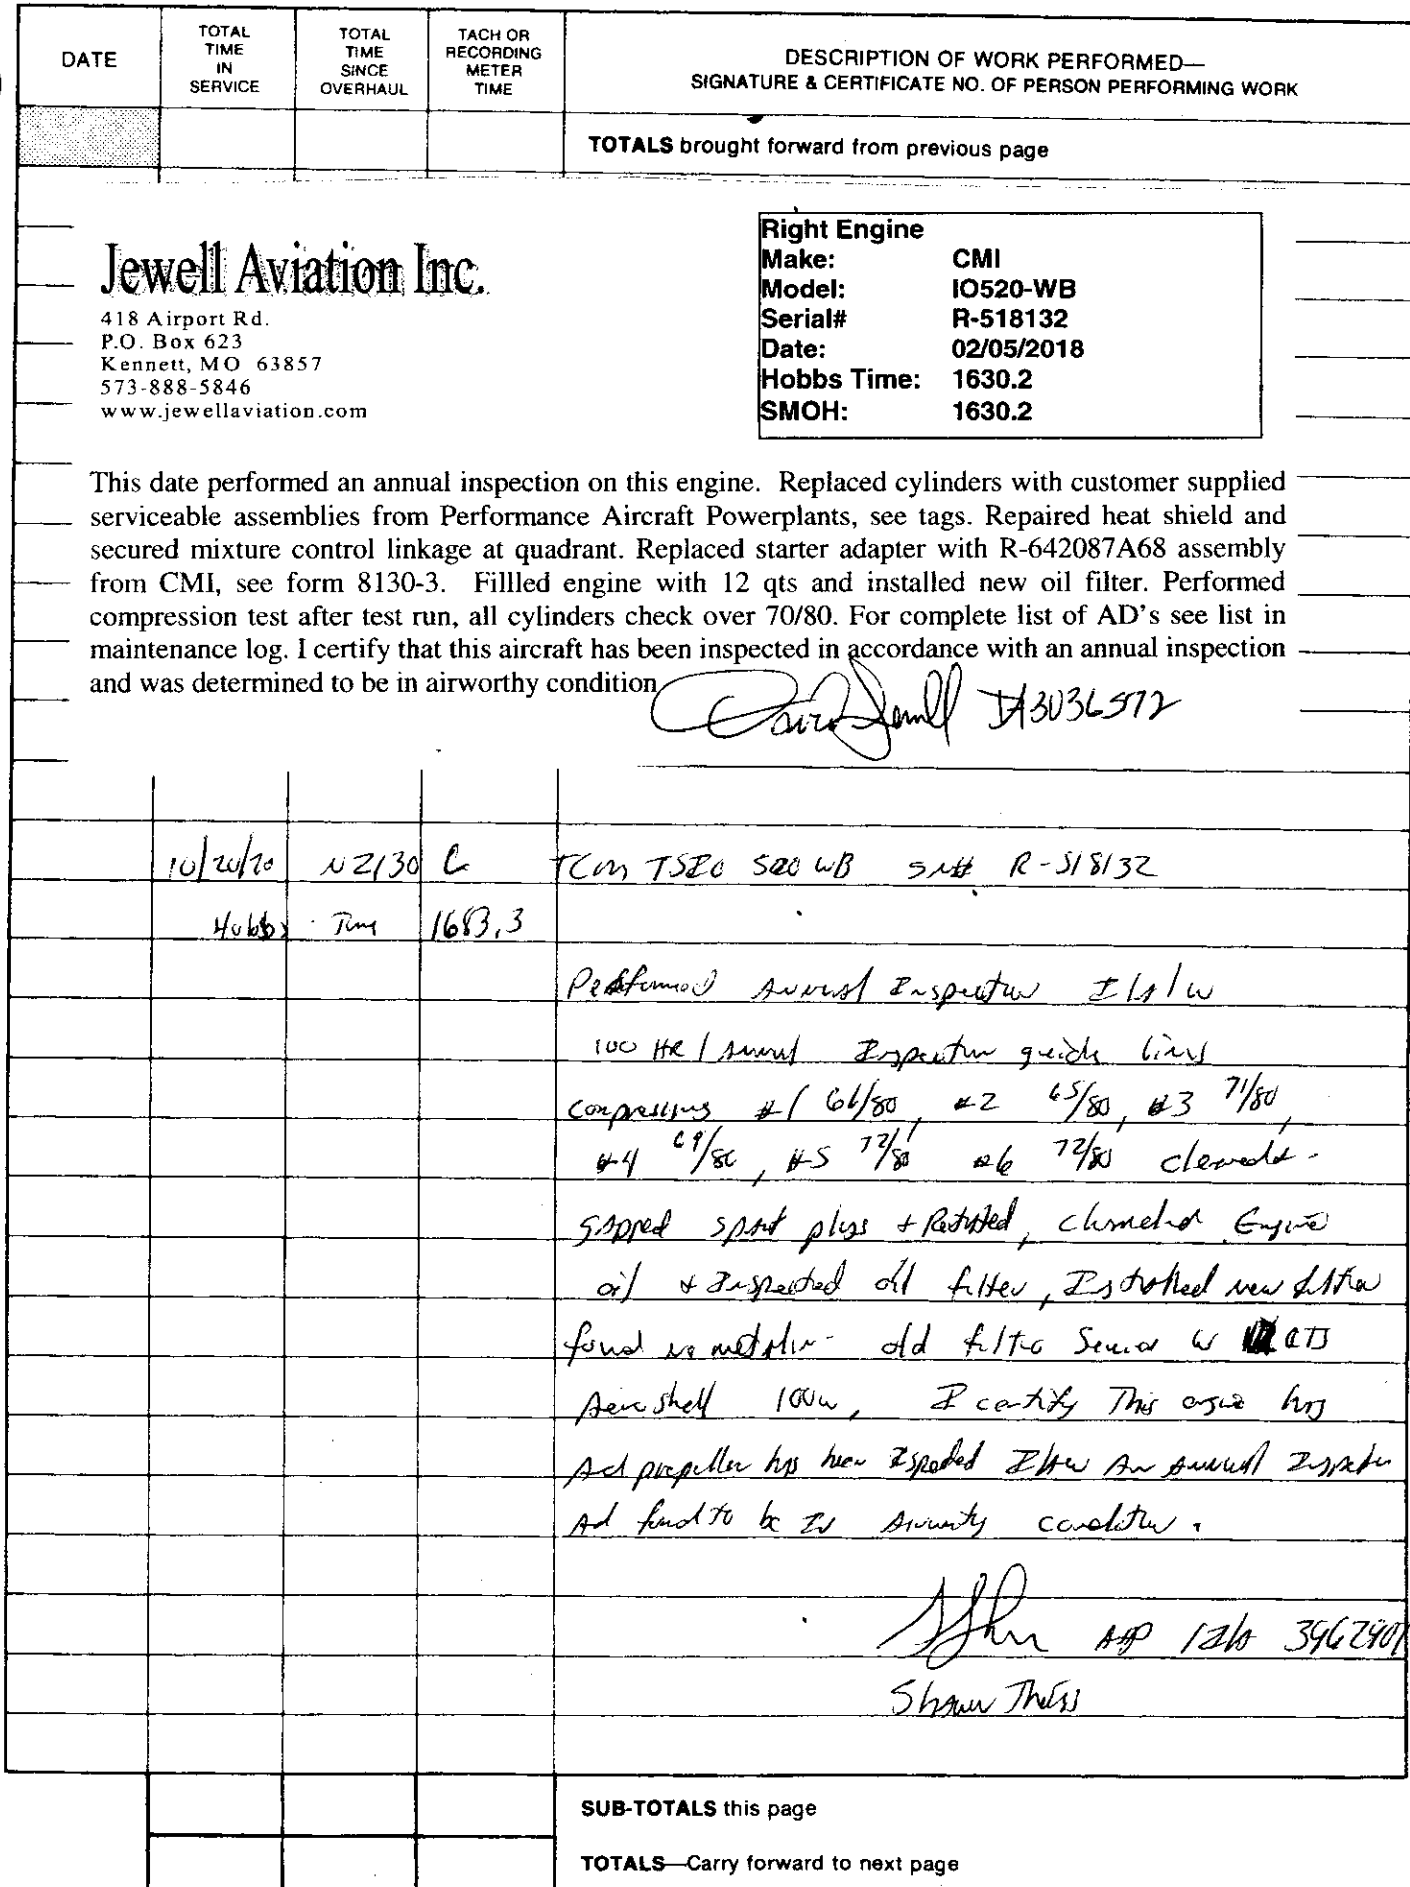 DATE
TOTAL TIME IN SERVICE
TOTAL TIME SINCE OVERHAUL
TACH OR RECORDING METER TIME
DESCRIPTION OF WORK PERFORMED—
SIGNATURE & CERTIFICATE NO. OF PERSON PERFORMING WORK
TOTALS brought forward from previous page
Jewell Aviation Inc.
418 Airport Rd.
P.O. Box 623
Kennett, MO 63857
573-888-5846
www.jewellaviation.com
Right Engine
Make: CMI
Model: IO520-WB
Serial# R-518132
Date: 02/05/2018
Hobbs Time: 1630.2
SMOH: 1630.2
This date performed an annual inspection on this engine. Replaced cylinders with customer supplied
serviceable assemblies from Performance Aircraft Powerplants, see tags. Repaired heat shield and
secured mixture control linkage at quadrant. Replaced starter adapter with R-642087A68 assembly
from CMI, see form 8130-3. Fillled engine with 12 qts and installed new oil filter. Performed
compression test after test run, all cylinders check over 70/80. For complete list of AD's see list in
maintenance log. I certify that this aircraft has been inspected in accordance with an annual inspection
and was determined to be in airworthy condition
IA3036572
10/20/20 TCM 520 WB SN# R-518132
Hobbs Time 1683.3
Performed Annual Inspection I/A/W
100 HR / Annual Inspection guide lines
#2 65/80, #3 71/80,
#4 69/80, #5 72/80 #6 72/80
gapped spark plugs + Engine
oil + Inspected oil filter, new filter
found no old filter QTS
Aeroshell 100w, I certify This engine
propeller has been Inspected An Annual Inspection
And found to be In condition.
A&P / IA
Shawn
SUB-TOTALS this page
TOTALS—Carry forward to next page